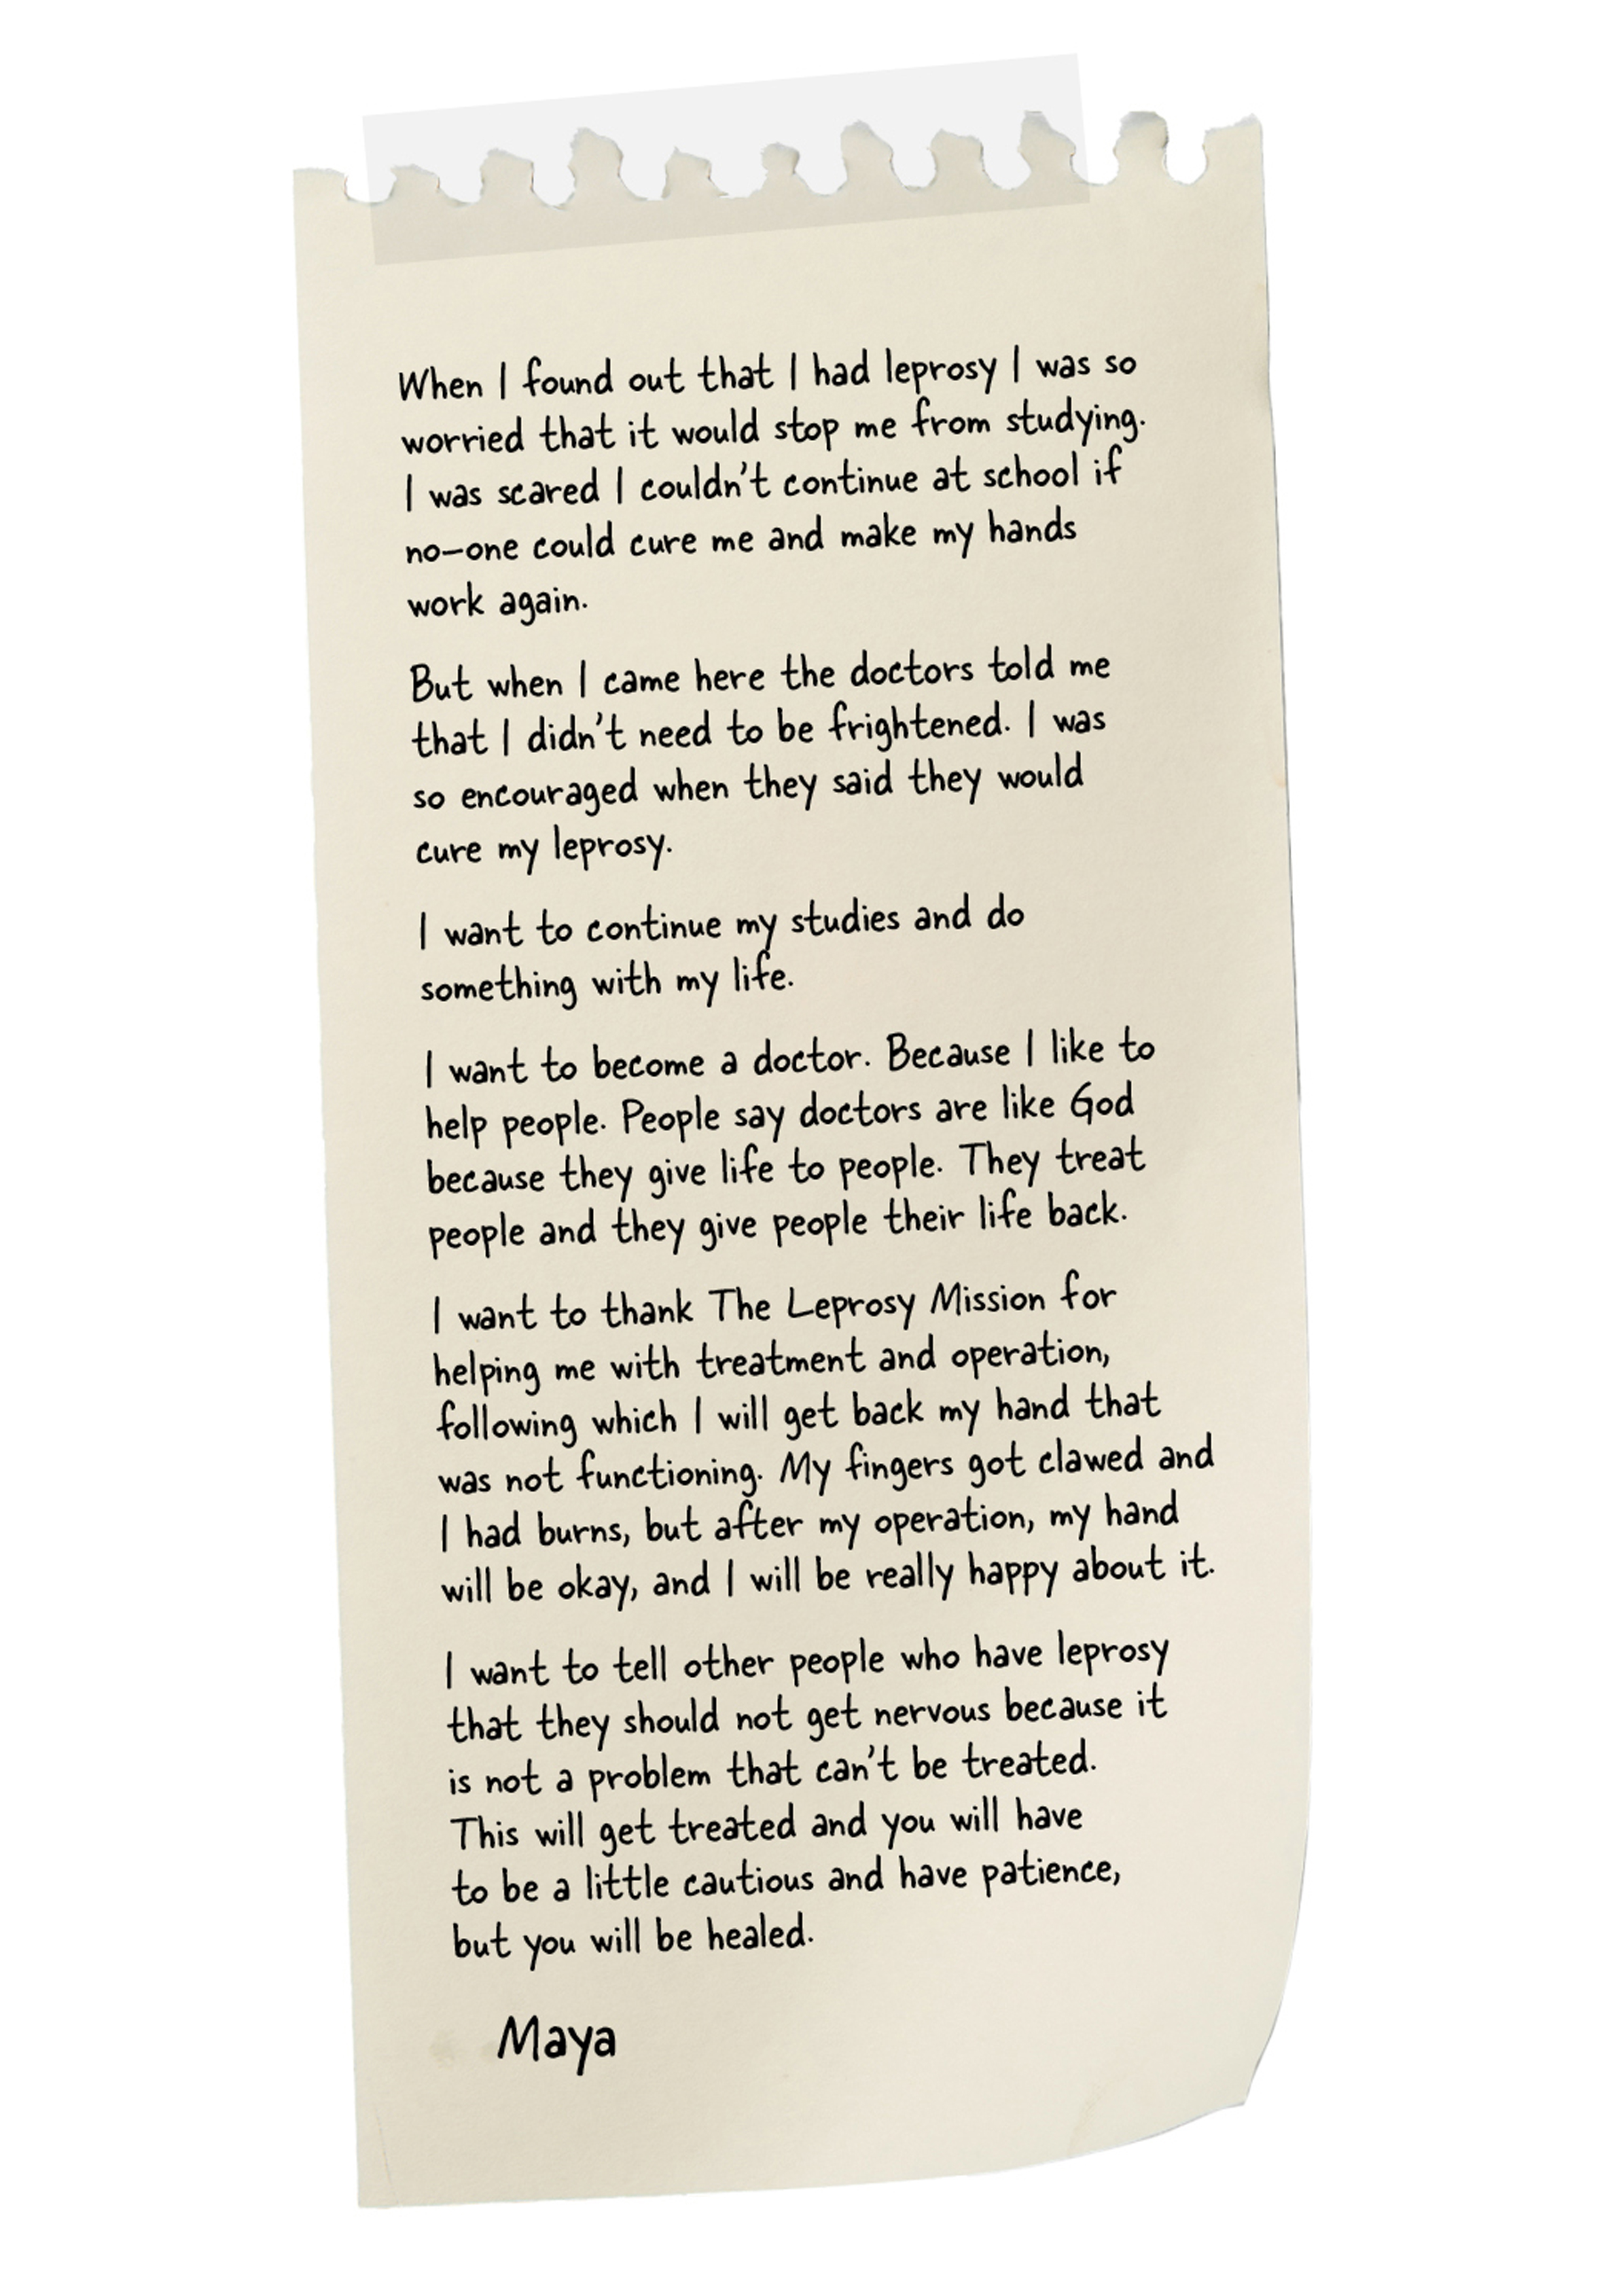 When I found out that I had leprosy I was so
worried that it would stop me from studying.
I was scared I couldn't continue at school if
no-one could cure me and make my hands
work again.
But when I came here the doctors told me
that I didn't need to be frightened. I was
so encouraged when they said they would
cure my leprosy.
I want to continue my studies and do
something with my life.
I want to become a doctor. Because I like to
help people. People say doctors are like God
because they give life to people. They treat
people and they give people their life back.
I want to thank The Leprosy Mission for
helping me with treatment and operation,
following which I will get back my hand that
was not functioning. My fingers got clawed and
I had burns, but after my operation, my hand
will be okay, and I will be really happy about it.
I want to tell other people who have leprosy
that they should not get nervous because it
is not a problem that can't be treated.
This will get treated and you will have
to be a little cautious and have patience,
but you will be healed.
Maya